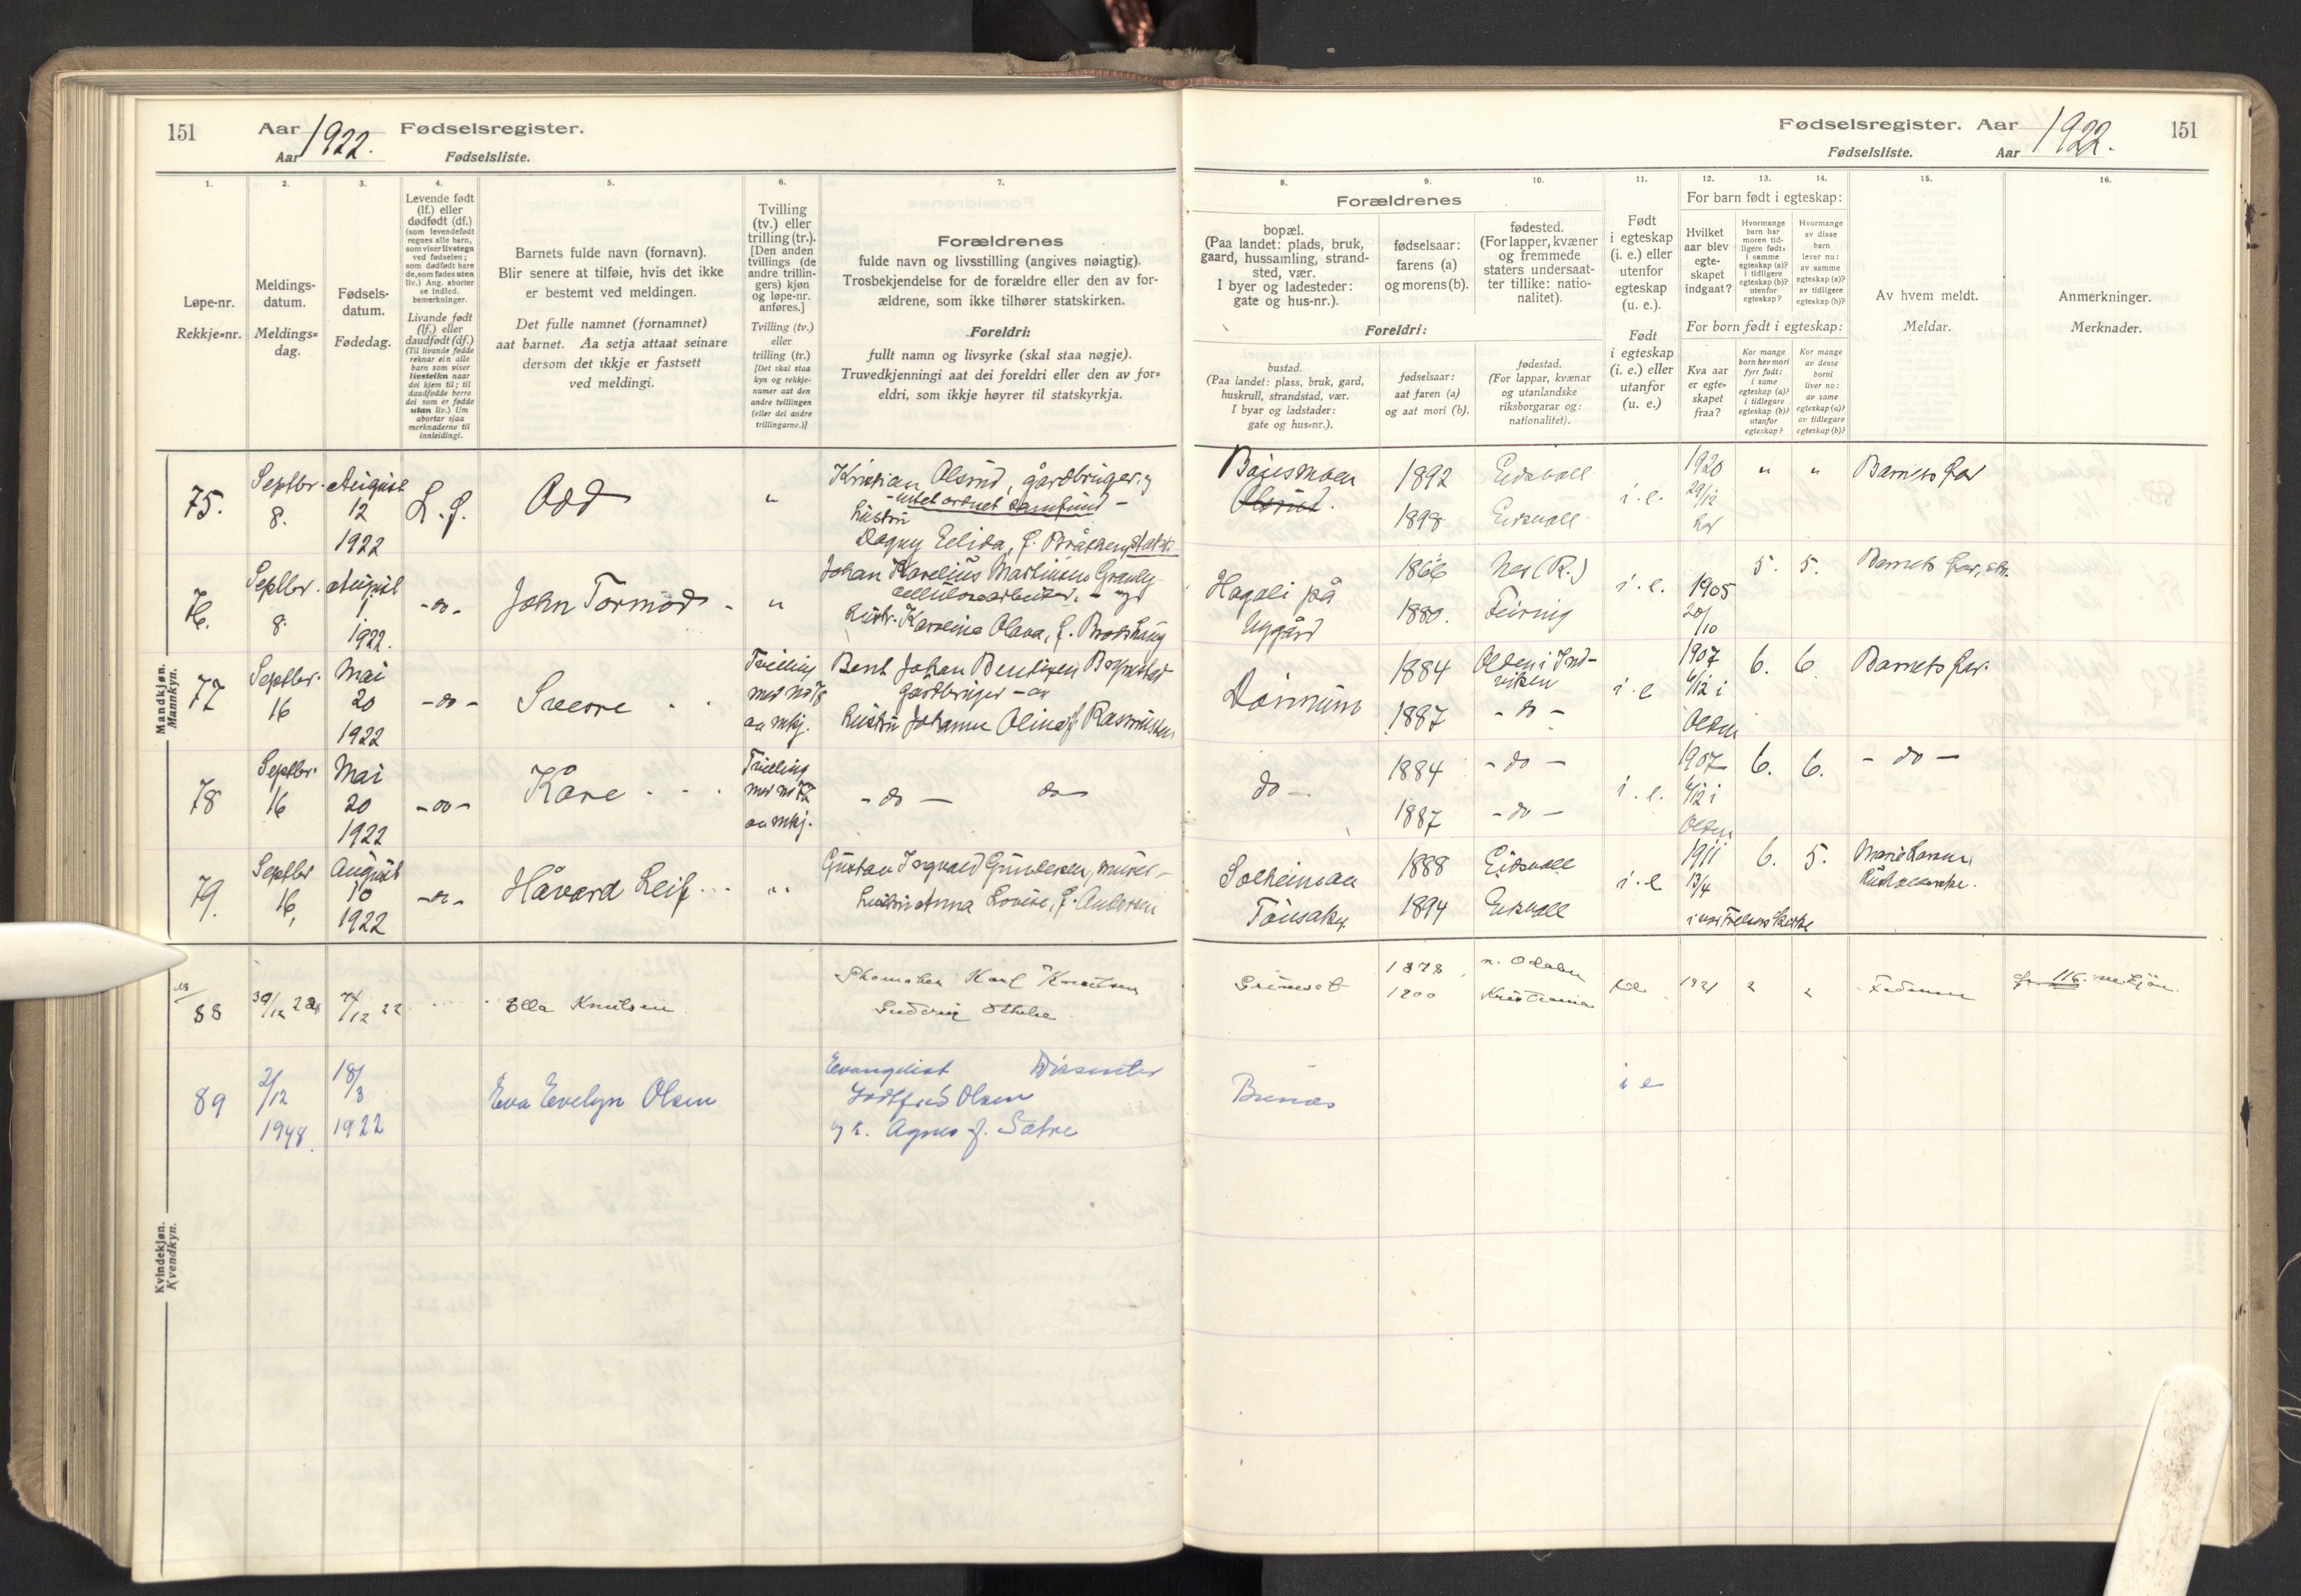 151 Aar 1922. Fødselsregister.
Aar Fødselsliste.
1. 2. 3. 4. 5. 6. 7.
Løpe-nr.
Rekkje-nr.
Meldings-
datum.
Meldings-
dag.
Fødsels-
datum.
Fødedag.
Levende født
(lf.) eller
dødfødt (df.)
(som levendefødt
regnes alle barn,
som viser livstegn
ved fødselen;
som dødfødt bare
de, som fødes uten
liv.) Ang. aborter
se indled.
bemerkninger.
Livande født
(lf.) eller
daudfødt (df.)
(Til livande fødde
reknar ein alle
barn som viser
livsteikn naar
dei kjem til; til
daudfødde berre
dei som er fødde
utan liv.) Um
abortar sjaa
merknaderne til
innleidingi.
Barnets fulde navn (fornavn).
Blir senere at tilføie, hvis det ikke
er bestemt ved meldingen.
Det fulle namnet (fornamnet)
aat barnet. Aa setja attaat seinare
dersom det ikkje er fastsett
ved meldingi.
Tvilling
(tv.) eller
trilling (tr.).
[Den anden
tvillings (de
andre trillin-
gers) kjøn
og løpe-nr.
anføres.]
Tvilling (tv.)
eller
trilling (tr.)
[Det skal staa
kyn og rekkje-
numer aat den
andre tvillingen
(eller dei andre
trillingarne.)]
Forældrenes
fulde navn og livsstilling (angives nøiagtig).
Trosbekjendelse for de forældre eller den av for-
ældrene, som ikke tilhører statskirken.
Foreldri:
fullt namn og livsyrke (skal staa nøgje).
Truvedkjenningi aat dei foreldri eller den av for-
eldri, som ikkje høyrer til statskyrkja.
Mandkjøn.
Mannkyn.
75.
Septbr.
8.
August
12
1922
L. f.
Odd
"
Kristian Olsrud, gårdbruger, y
hustru
Dagny Elida, f. Bråthen
76.
Septbr.
8.
August
1
1922.
-do-
John Tormod
"
Johan Karelius Martinsen Granly
Hustr. Karoline Olava, f.
77
Septbr.
16
Mai
20
1922
-do-
Sverre
Tvilling
med no 78
au mkj.
Bent Johan Bentsen
gårdbruger - og
hustru Johanne Olina f. Rasmussen
78
Septbr.
16
Mai
20
1922
-do-
Kåre
Tvilling
med no 77
au mkj.
-do- do
79.
Septbr
16,
August
10
1922
-do-
Håvard Leif
"
Gustav Ingvald Gundersen, murer-
hustru Anna Lovise, f. Andersen
Kvindekjøn.
Kvendkyn.
88
30/12 22
22
Ella Knutsen
Skomaker Karl Knutsen
89
2/12
1948.
18/8
1922
Eva Evelyn Olsen
Evangelist Dissenter
Godtfred Olsen
y h. Agnes f. Sætre
Fødselsregister. Aar 1922. 151
Fødselsliste. Aar
8. 9. 10. 11. 12. 13. 14. 15. 16.
Forældrenes
bopæl.
(Paa landet: plads, bruk,
gaard, hussamling, strand-
sted, vær.
I byer og ladesteder:
gate og hus-nr.).
fødselsaar:
farens (a)
og morens (b).
fødested.
(For lapper, kvæner
og fremmede
staters undersaat-
ter tillike: natio-
nalitet).
Foreldri:
bustad.
(Paa landet: plass, bruk, gard,
huskrull, strandstad, vær.
I byar og ladstader:
gate og hus-nr.).
fødselsaar:
aat faren (a)
og aat mori (b).
fødestad.
(For lappar, kvænar
og utanlandske
riksborgarar og:
nationalitet).
Født
i egteskap
(i. e.) eller
utenfor
egteskap
(u. e.).
Født
i egteskap
(i. e.) eller
utanfor
(u. e.)
For barn født i egteskap:
Hvilket
aar blev
egte-
skapet
indgaat?
Hvormange
barn har
moren tid-
ligere født:
i samme
egteskap (a)?
i tidligere
egteskap (b)?
utenfor
egteskap?
Hvormange
av disse
barn
lever nu:
av samme
egteskap (a)?
av tidligere
egteskap (b)?
For born født i egteskap:
Kva aar
er egte-
skapet
fraa?
Kor mange
born hev mori
fyrr født:
i same
egteskap (a)?
i tidlegare
egteskap (b)?
utanfor
egteskap?
Kor mange
av desse
borni
liver no:
av same
egteskap (a)?
av tidlegare
egteskap (b)?
Av hvem meldt.
Meldar.
Anmerkninger.
Merknader.
Olsrud.
1892
1898
Eidsvoll
Eidsvoll
i. e.
1920
29/12
"
"
Barnets far
Hagali på
Nygård
1866
1880.
Nes (R.)
Feiring
i. e.
1905
20/10
5.
5.
Barnets far,
1884
1887
Olden i Ind-
viken
-do-
i. e
1907
6/12 i
Olden
6.
6.
Barnets far.
do
1884
1887
-do-
-do-
i. e.
1907
6/12 i
Olden
6.
6.
-do-
1888
1894
Eidsvoll
Eidsvoll
i. e
1911
13/4
i vor Frelsers Kirke
6.
5.
1878
1900
n. Odalen
Kristiania
1921
2
2
Faderen
116
Bønes
i e